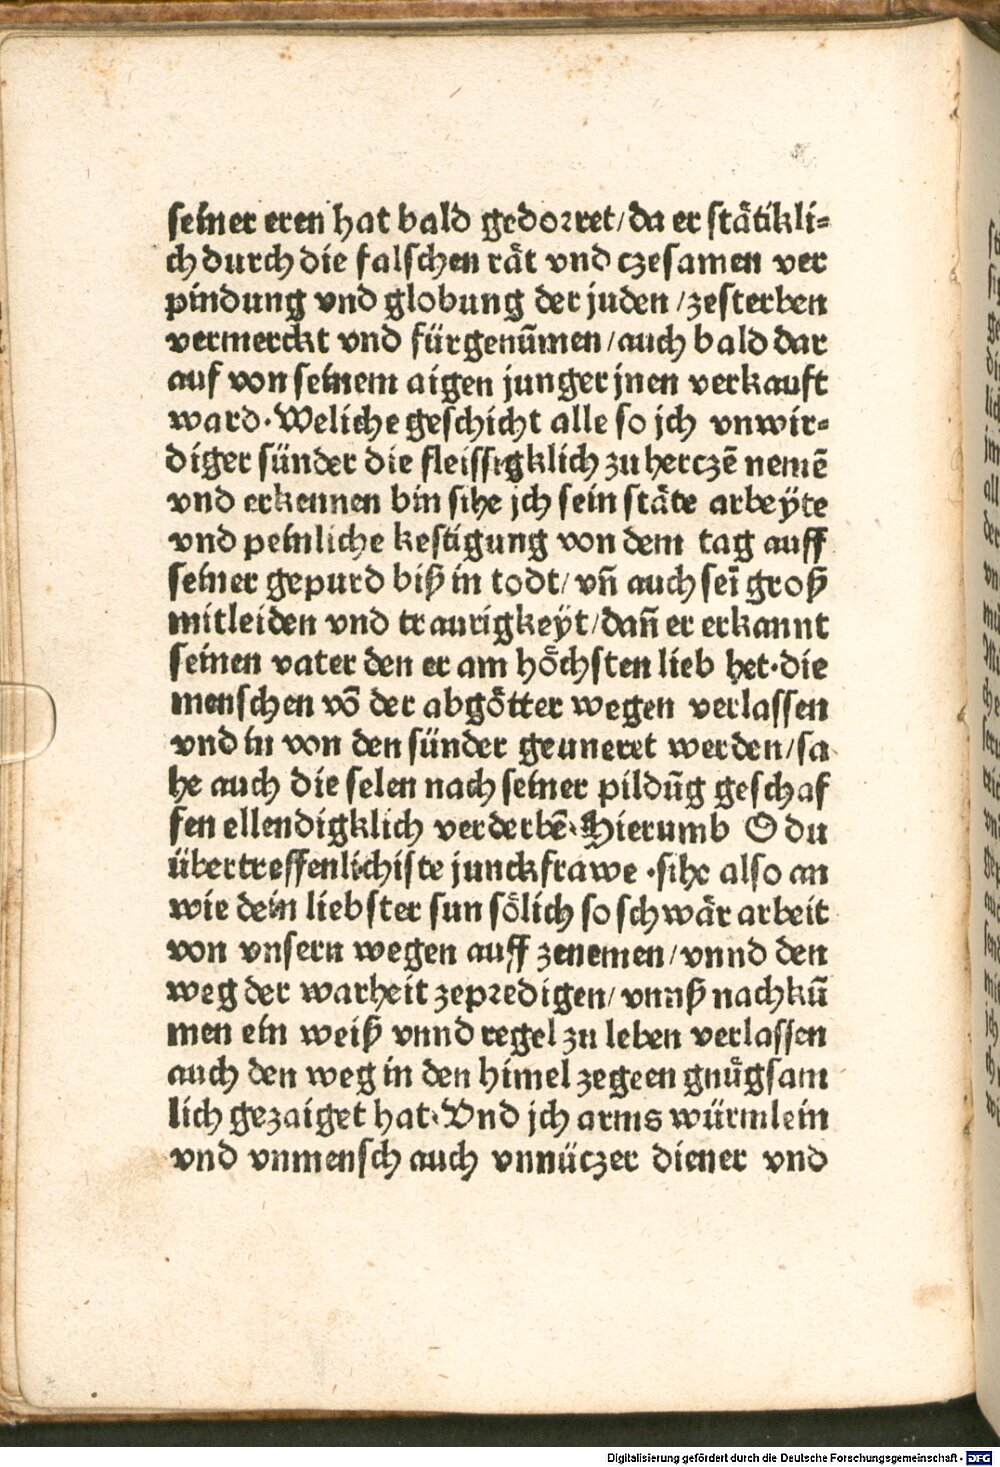 seiner eren hat bald gedorret/da er stätikli=
ch durch die falschen rät vnd czesamen ver
pindung vnd globung der juden /zesterben
vermerckt vnd fürgenūmen/auch bald dar
auf von seinem aigen junger jnen verkauft
ward·Weliche geschicht alle so jch vnwir=
diger sünder die fleissigklich zu herczē nemē
vnd erkennen bin sihe jch sein stäte arbeÿte
vnd peinliche kestigung von dem tag auff
seiner gepurd biß in todt/ vn̄ auch sei̅ groß
mitleiden vnd traurigkeÿt/dan̄ er erkannt
seinen vater den er am höchsten lieb het·die
menschen vō der abgötter wegen verlassen
vnd in von den sünder geuneret werden/sa
he auch die selen nach seiner pildūg geschaf
fen ellendigklich verderbē·Hierumb O du
übertreffenlichiste junckfrawe ·sihe also an
wie dein liebster sun sölich so schwär arbeit
von vnsern wegen auff zenemen/vnnd den
weg der warheit zepredigen/ vnnß nachkū
men ein weiß vnnd regel zu leben verlassen
auch den weg in den himel zegeen gnůgsam
lich gezaiget hat·Vnd jch arms würmlein
vnd vnmensch auch vnnüczer diener vnd
Digitalisierung gefördert durch die Deutsche Forschungsgemeinschaft - DFG